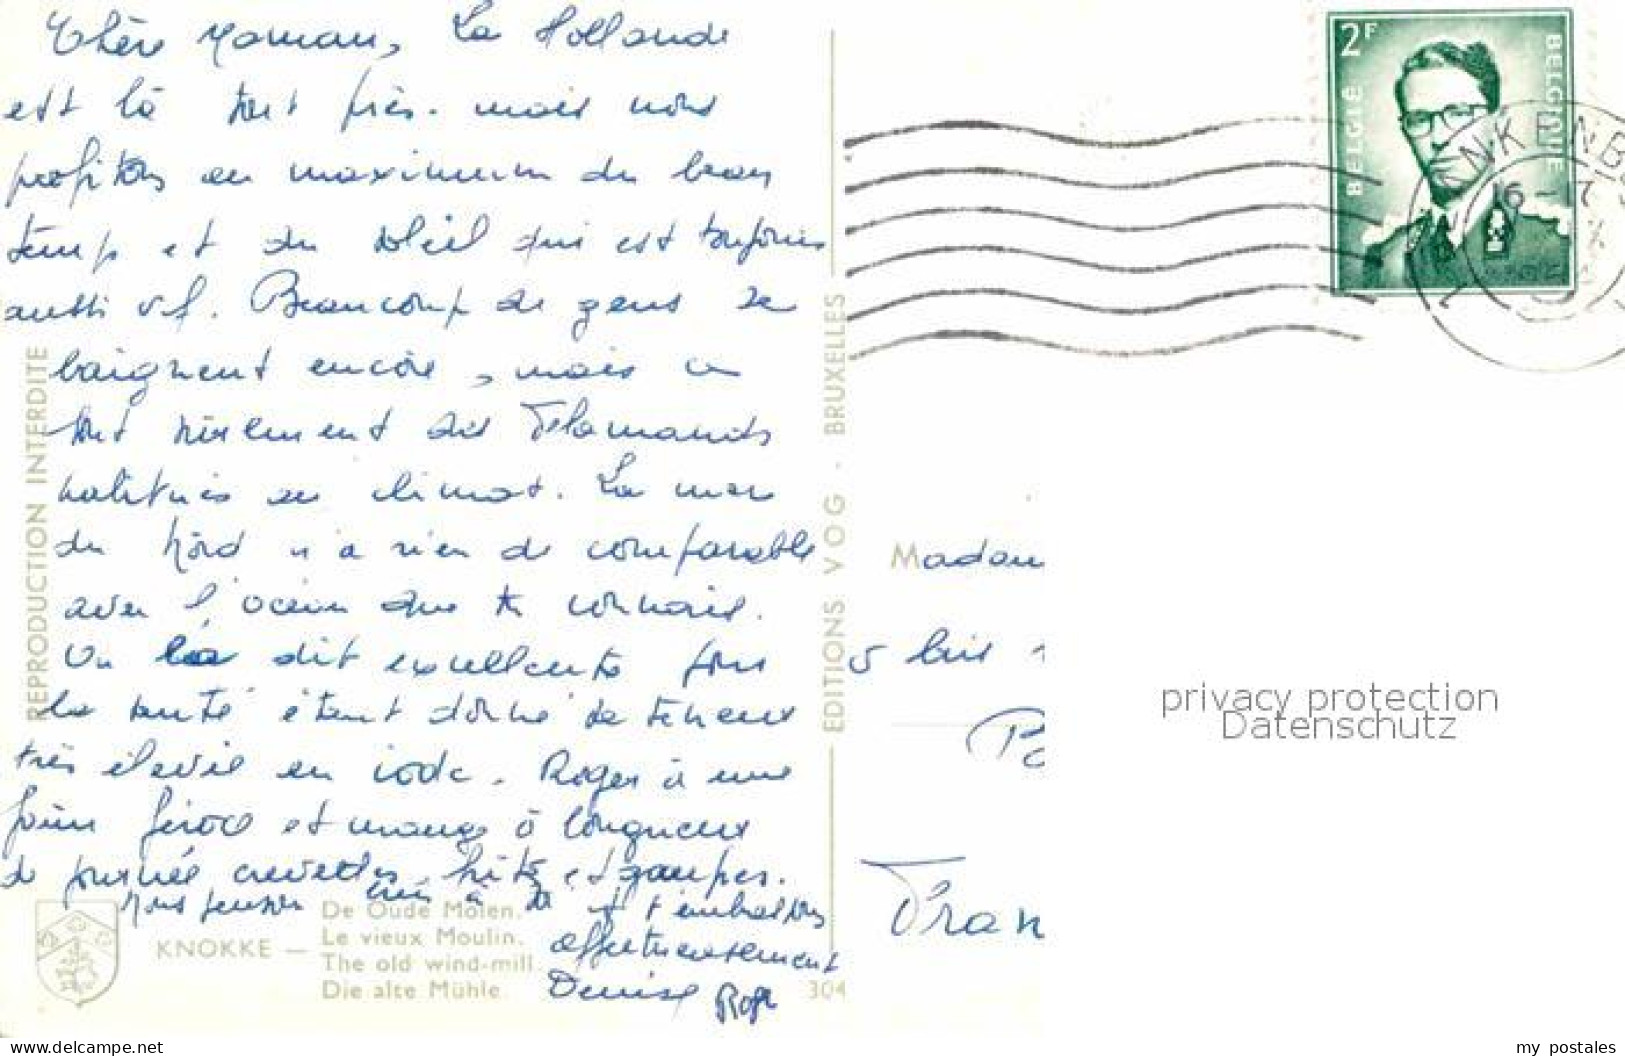 Chère Maman, La Hollande
est là tout près. mais nous
profitons au maximum du beau
temps et du soleil qui est toujours
aussi vif. Beaucoup de gens se
baignent encore, mais ce
sont sûrement des Flamands
habitués au climat. La mer
du Nord n'a rien de comparable
avec l'océan que tu connais.
On la dit excellente pour
la santé étant donné sa teneur
très élevée en iode. Roger a une
faim féroce et mange à longueur
de journée crevettes, frites et gaufres.
Nous pensons à toi et t'embrassons
affectueusement
Denise Roger
REPRODUCTION INTERDITE
EDITIONS VOG - BRUXELLES
KNOKKE —
De Oude Molen.
Le vieux Moulin.
The old wind-mill.
Die alte Mühle
304
2F
BELGIË
BELGIQUE
NKENB
16 - 7
Madam
5 bis
Pa
Fran
privacy protection
Datenschutz
www.delcampe.net
my_postales